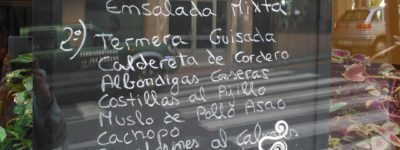 Ensalada Mixta.
2º) Ternera Guisada
Caldereta de Cordero
Albondigas Caseras
Costillas al Ajillo
Muslo de Pollo Asao
Cachopo
al